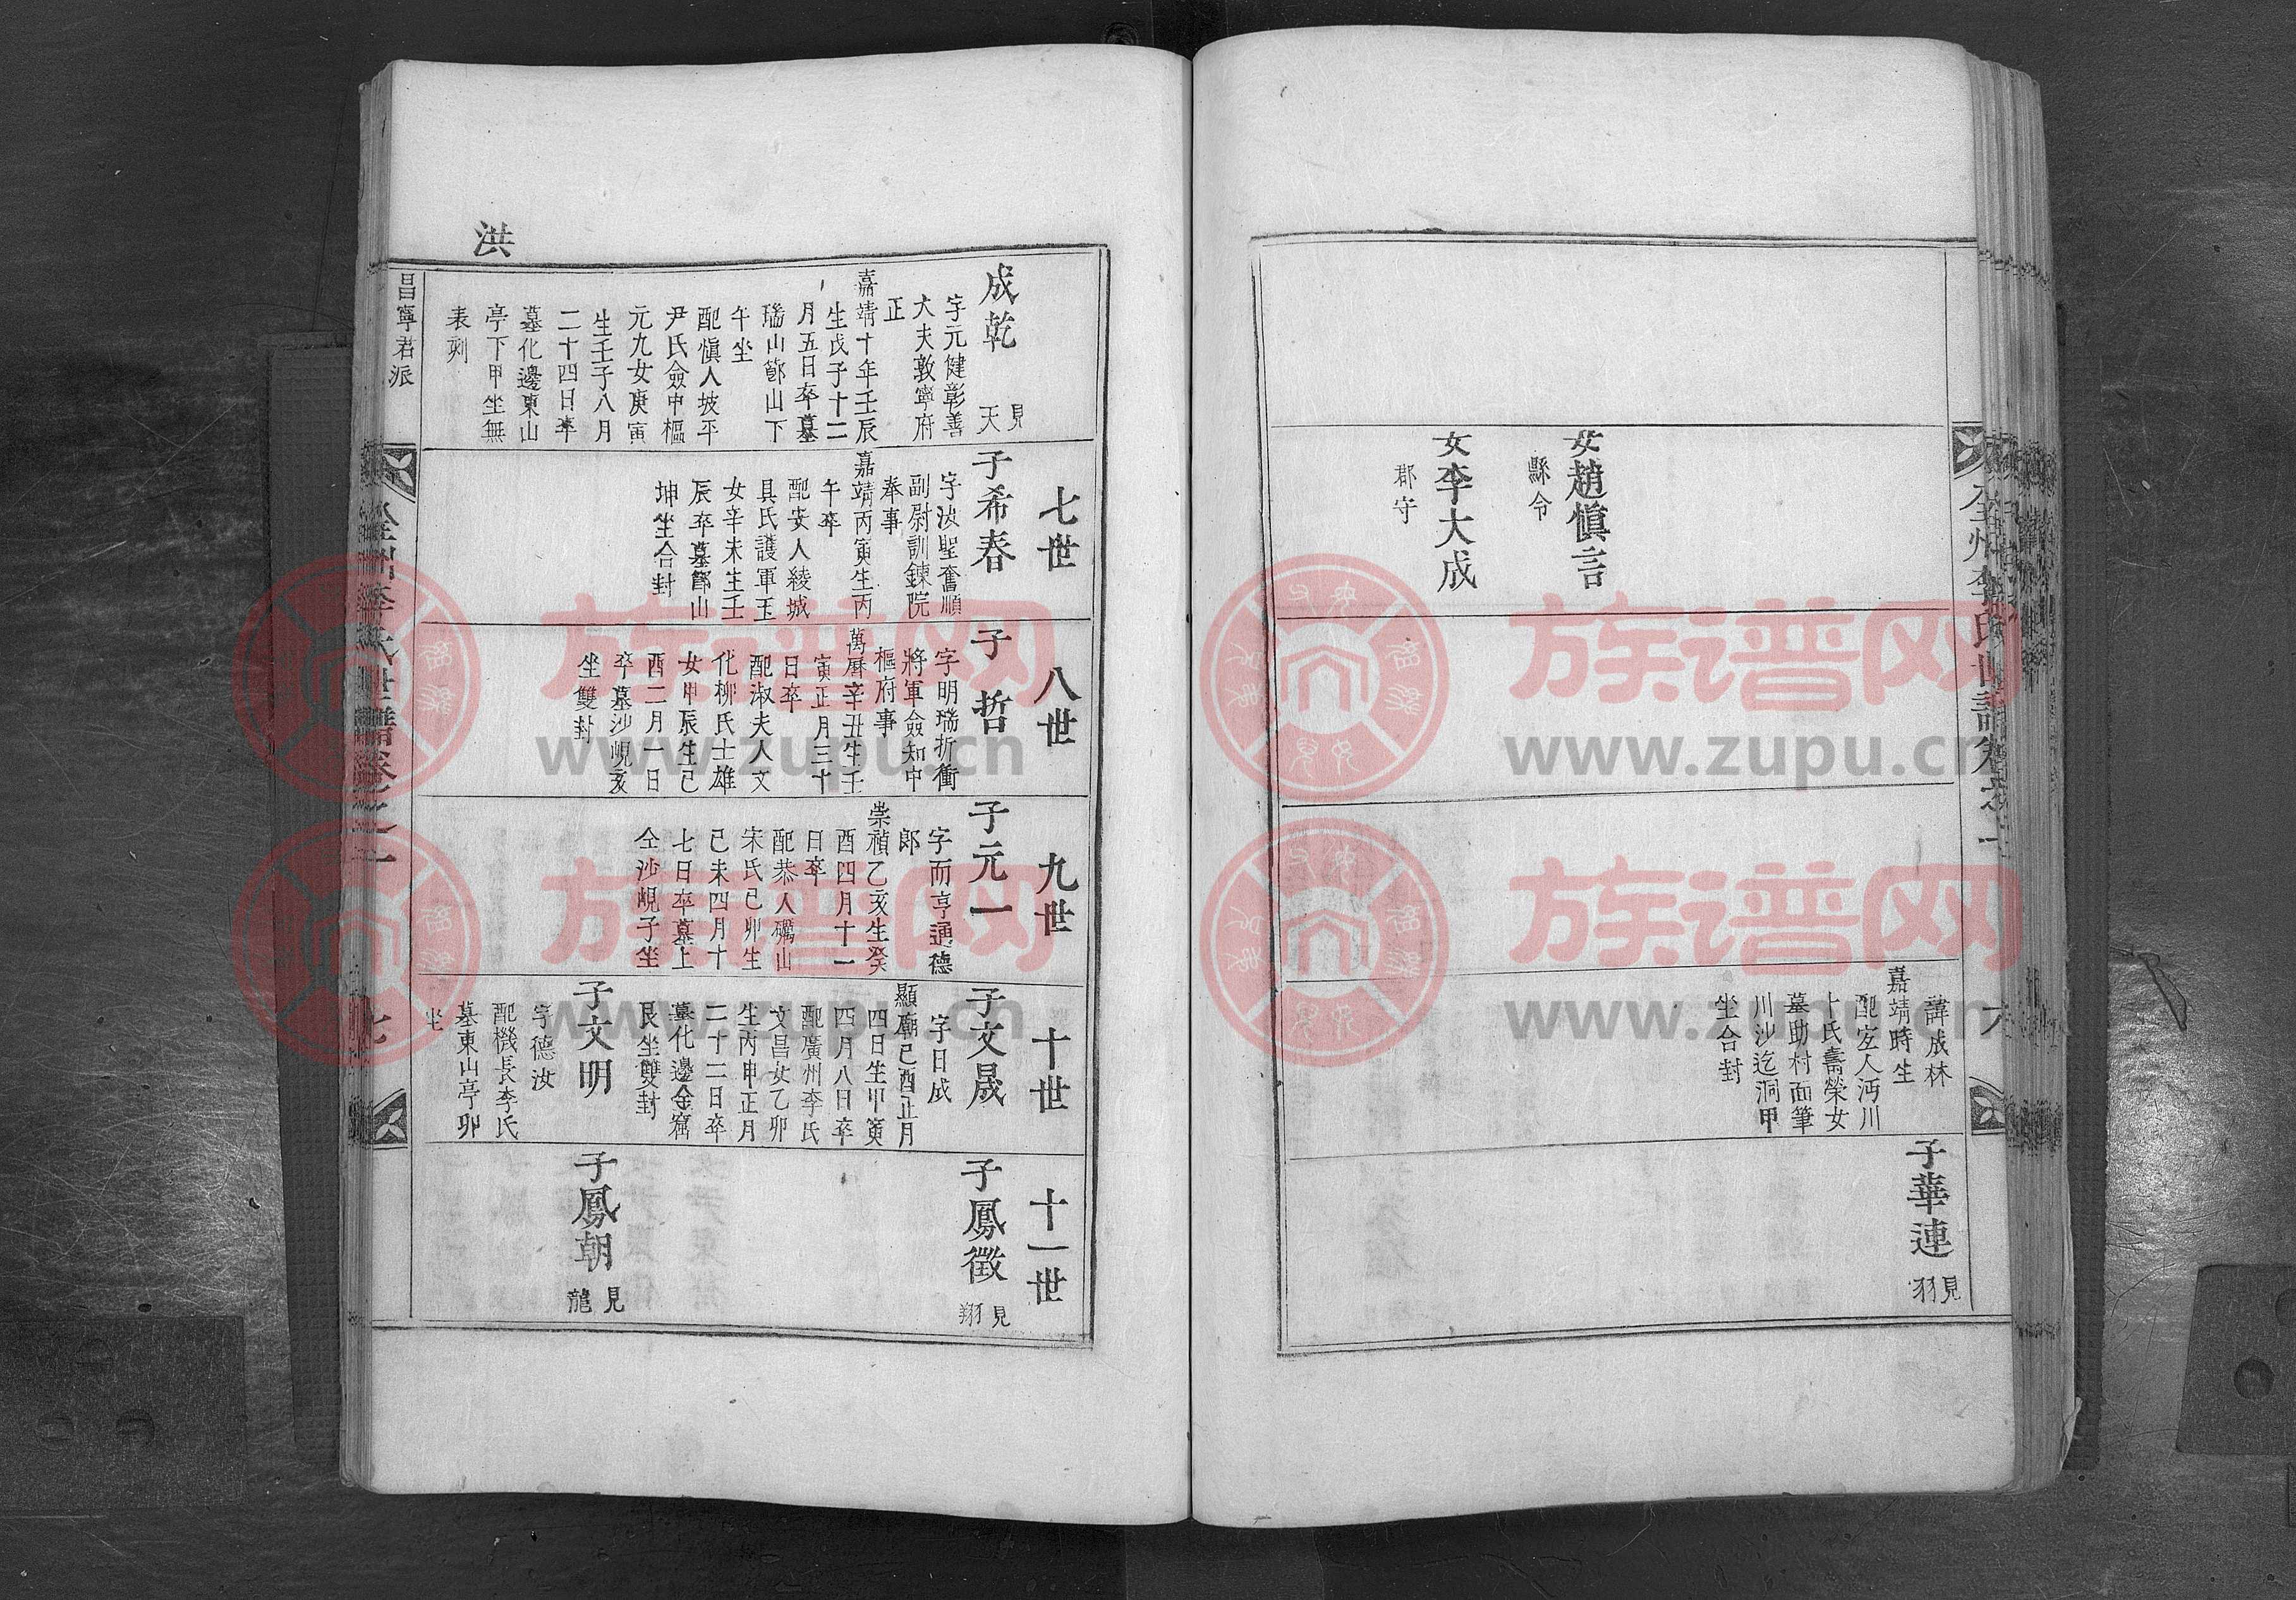 全州李氏世譜卷之一
六
女趙愼言
縣令
女李大成
郡守
諱成林
嘉靖時生
配宜人沔川
卜氏壽榮女
墓助村面筆
川沙迄洞甲
坐合封
子華連
見
羽
洪
成乾
見
天
字元健彰善
大夫敦寧府
正
嘉靖十年壬辰
生戊子十二
月五日卒墓
瑞山節山下
午坐
配愼人坡平
尹氏僉中樞
元九女庚寅
生壬子八月
二十四日卒
墓化邊東山
亭下甲坐無
表刻
七世
子希春
字汝聖奮順
副尉訓鍊院
奉事
嘉靖丙寅生丙
午卒
配安人綾城
具氏護軍玉
女辛未生壬
辰卒墓節山
坤坐合封
八世
子哲
字明瑞折衝
將軍僉知中
樞府事
萬曆辛丑生壬
寅正月三十
日卒
配淑夫人文
化柳氏士雄
女甲辰生己
酉二月一日
卒墓沙峴亥
坐雙封
九世
子元一
字而亨通德
郞
崇禎乙亥生癸
酉四月十一
日卒
配恭人礪山
宋氏己卯生
己未四月十
七日卒墓上
仝沙峴子坐
十世
子文晟
字日成
顯廟己酉正月
四日生甲寅
四月八日卒
配廣州李氏
文昌女乙卯
生丙申正月
二十二日卒
墓化邊金窩
艮坐雙封
子文明
字德汝
配機長李氏
墓東山亭卯
坐
十一世
子鳳徵
見
翔
子鳳朝
見
龍
昌寧君派
全州李氏世譜卷之一
七
族谱网
www.zupu.cn
族谱网
www.zupu.cn
族谱网
www.zupu.cn
族谱网
www.zupu.cn